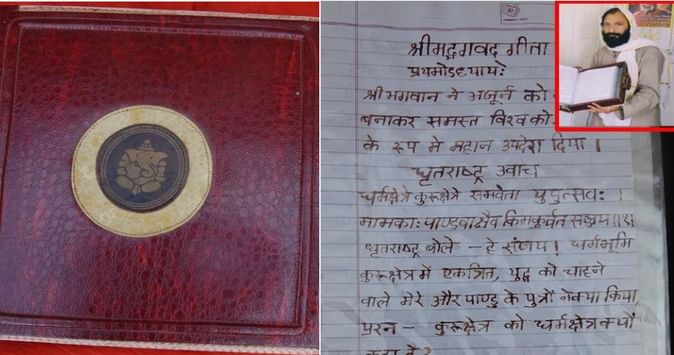 श्रीमद्भगवद गीता
प्रथमोऽध्याये:
श्री भगवान ने अजुर्न को
बनाकर समस्त विश्व को
के रूप मे महान उपदेश दिया ।
धृतराष्ट्र उवाच
धर्मक्षेत्रे कुरूक्षेत्रे समवेता युयुत्सव: ।
मामका: पाण्डवाश्चैव किमकुर्वत सञ्जय॥१॥
धृतराष्ट्र बोले - हे संजय । धर्मभूमि
कुरूक्षेत्र में एकत्रित, युद्ध को चाहने
वाले मेरे और पाण्डु के पुत्रों ने क्या किया,
प्रश्न - कुरूक्षेत्र को धर्मक्षेत्र क्यों